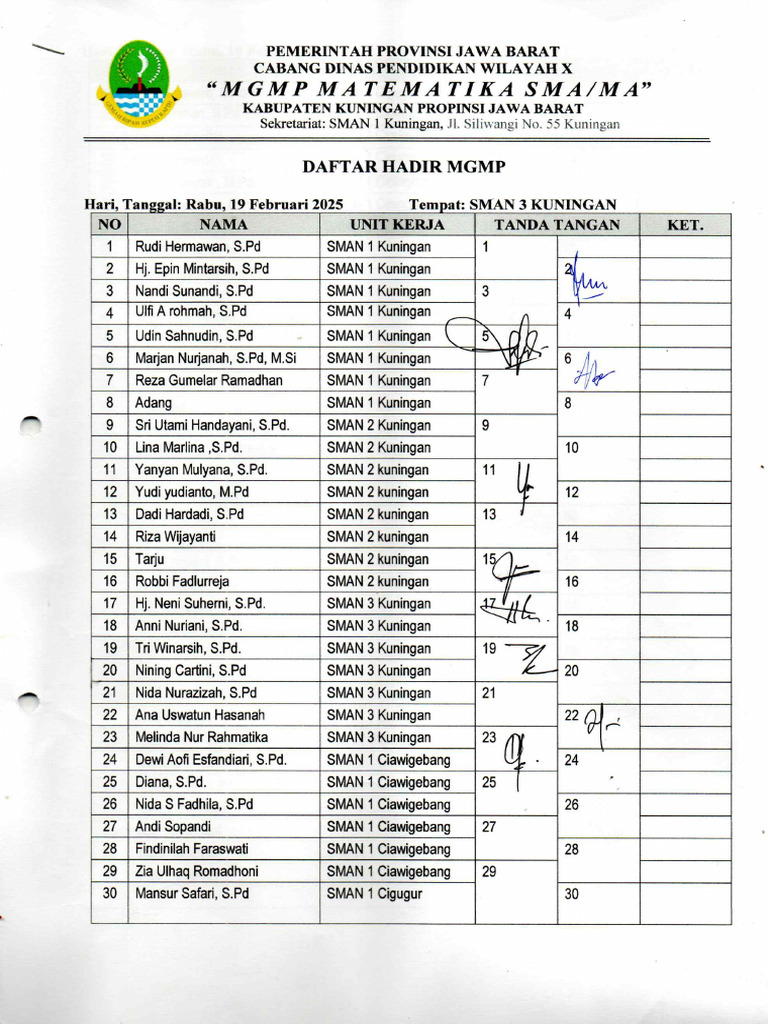 PEMERINTAH PROVINSI JAWA BARAT
CABANG DINAS PENDIDIKAN WILAYAH X
“MGMP MATEMATIKA SMA/MA”
KABUPATEN KUNINGAN PROPINSI JAWA BARAT
Sekretariat: SMAN 1 Kuningan, Jl. Siliwangi No. 55 Kuningan
DAFTAR HADIR MGMP
Hari, Tanggal: Rabu, 19 Februari 2025 Tempat: SMAN 3 KUNINGAN
NO NAMA UNIT KERJA TANDA TANGAN KET.
1 Rudi Hermawan, S.Pd SMAN 1 Kuningan 1
2 Hj. Epin Mintarsih, S.Pd SMAN 1 Kuningan 2
3 Nandi Sunandi, S.Pd SMAN 1 Kuningan 3
4 Ulfi A rohmah, S.Pd SMAN 1 Kuningan 4
5 Udin Sahnudin, S.Pd SMAN 1 Kuningan 5
6 Marjan Nurjanah, S.Pd, M.Si SMAN 1 Kuningan 6
7 Reza Gumelar Ramadhan SMAN 1 Kuningan 7
8 Adang SMAN 1 Kuningan 8
9 Sri Utami Handayani, S.Pd. SMAN 2 Kuningan 9
10 Lina Marlina ,S.Pd. SMAN 2 Kuningan 10
11 Yanyan Mulyana, S.Pd. SMAN 2 kuningan 11
12 Yudi yudianto, M.Pd SMAN 2 kuningan 12
13 Dadi Hardadi, S.Pd SMAN 2 kuningan 13
14 Riza Wijayanti SMAN 2 kuningan 14
15 Tarju SMAN 2 kuningan 15
16 Robbi Fadlurreja SMAN 2 kuningan 16
17 Hj. Neni Suherni, S.Pd. SMAN 3 Kuningan 17
18 Anni Nuriani, S.Pd. SMAN 3 Kuningan 18
19 Tri Winarsih, S.Pd. SMAN 3 Kuningan 19
20 Nining Cartini, S.Pd SMAN 3 Kuningan 20
21 Nida Nurazizah, S.Pd SMAN 3 Kuningan 21
22 Ana Uswatun Hasanah SMAN 3 Kuningan 22
23 Melinda Nur Rahmatika SMAN 3 Kuningan 23
24 Dewi Aofi Esfandiari, S.Pd. SMAN 1 Ciawigebang 24
25 Diana, S.Pd. SMAN 1 Ciawigebang 25
26 Nida S Fadhila, S.Pd SMAN 1 Ciawigebang 26
27 Andi Sopandi SMAN 1 Ciawigebang 27
28 Findinilah Faraswati SMAN 1 Ciawigebang 28
29 Zia Ulhaq Romadhoni SMAN 1 Ciawigebang 29
30 Mansur Safari, S.Pd SMAN 1 Cigugur 30